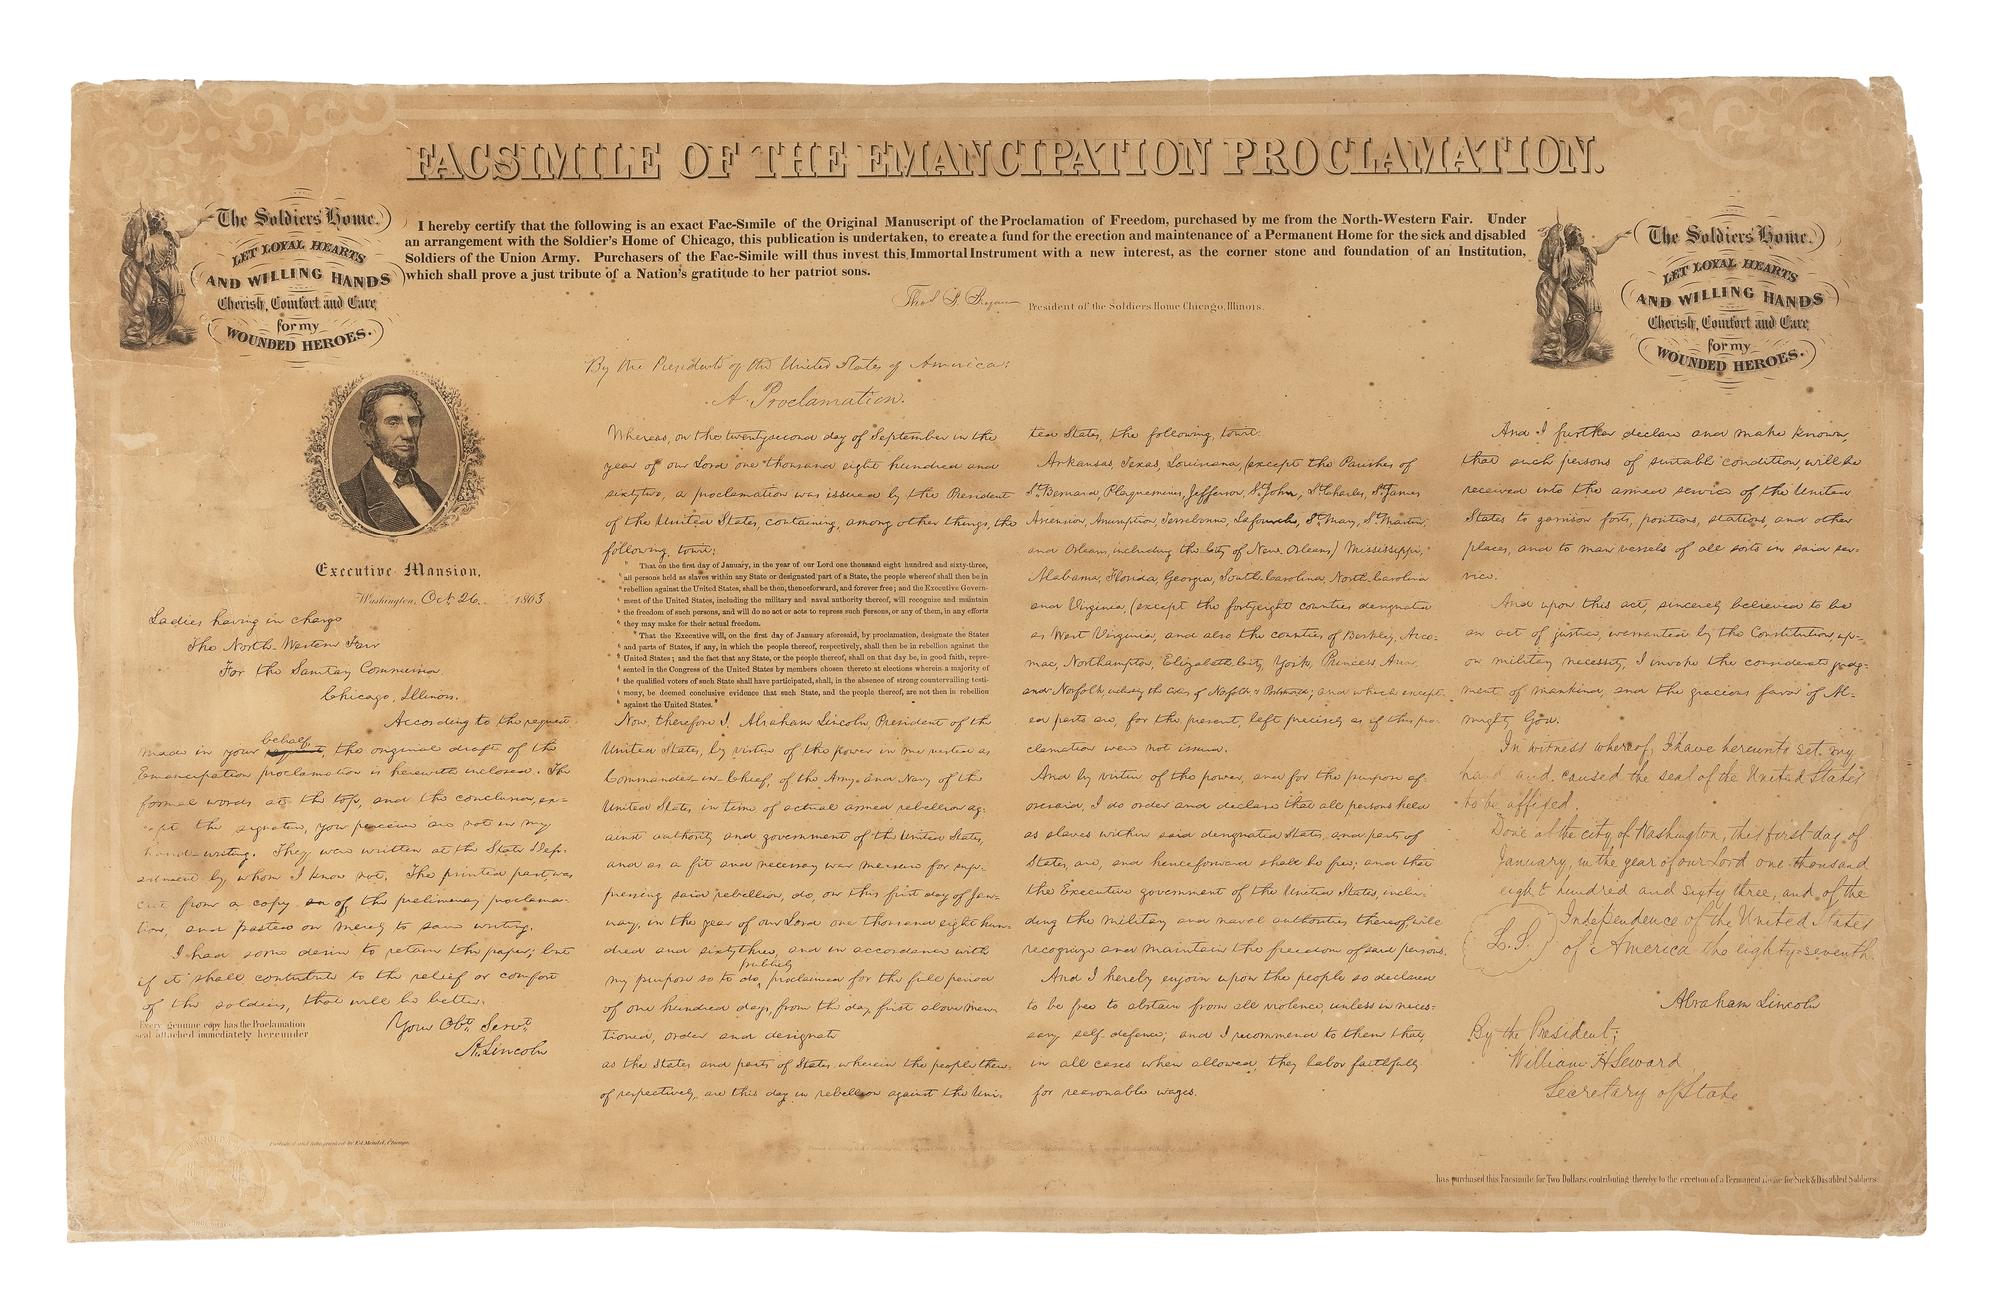 FACSIMILE OF THE EMANCIPATION PROCLAMATION.
The Soldiers' Home.
LET LOYAL HEARTS
AND WILLING HANDS
Cherish, Comfort and Care,
for my
WOUNDED HEROES.
I hereby certify that the following is an exact Fac-Simile of the Original Manuscript of the Proclamation of Freedom, purchased by me from the North-Western Fair. Under
an arrangement with the Soldier's Home of Chicago, this publication is undertaken, to create a fund for the erection and maintenance of a Permanent Home for the sick and disabled
Soldiers of the Union Army. Purchasers of the Fac-Simile will thus invest this Immortal Instrument with a new interest, as the corner stone and foundation of an Institution,
which shall prove a just tribute of a Nation's gratitude to her patriot sons.
President of the Soldiers Home Chicago, Illinois.
The Soldiers' Home.
LET LOYAL HEARTS
AND WILLING HANDS
Cherish, Comfort and Care,
for my
WOUNDED HEROES.
Executive Mansion,
Washington, Oct. 26, 1863
Ladies having in charge
The North-Western Fair
For the Sanitary Commission
Chicago, Illinois.
According to the request
made in your behalf, the original draft of the
Emancipation proclamation is herewith inclosed. The
formal words at the top, and the conclusion, ex-
cept the signature, you perceive are not in my
hand-writing. They were written at the State Dep-
artment by whom I know not. The printed part was
cut from a copy of the preliminary proclama-
tion, and pasted on merely to save writing.
I had some desire to retain the paper; but
if it shall contribute to the relief or comfort
of the soldiers, that will be better.
Your Obt. Servt.
A. Lincoln
Every genuine copy has the Proclamation
seal attached immediately hereunder
By the President of the United States of America:
A Proclamation.
Whereas, on the twentysecond day of September in the
year of our Lord one thousand eight hundred and
sixtytwo, a proclamation was issued by the President
of the United States, containing, among other things, the
following, towit:
" That on the first day of January, in the year of our Lord one thousand eight hundred and sixty-three,
all persons held as slaves within any State or designated part of a State, the people whereof shall then be in
rebellion against the United States, shall be then, thenceforward, and forever free; and the Executive Govern-
ment of the United States, including the military and naval authority thereof, will recognize and maintain
the freedom of such persons, and will do no act or acts to repress such persons, or any of them, in any efforts
they may make for their actual freedom.
" That the Executive will, on the first day of January aforesaid, by proclamation, designate the States
and parts of States, if any, in which the people thereof, respectively, shall then be in rebellion against the
United States; and the fact that any State, or the people thereof, shall on that day be, in good faith, repre-
sented in the Congress of the United States by members chosen thereto at elections wherein a majority of
the qualified voters of such State shall have participated, shall, in the absence of strong countervailing testi-
mony, be deemed conclusive evidence that such State, and the people thereof, are not then in rebellion
against the United States."
Now, therefore I, Abraham Lincoln, President of the
United States, by virtue of the power in me vested as
Commander-in-Chief, of the Army and Navy of the
United States in time of actual armed rebellion ag-
ainst authority and government of the United States,
and as a fit and necessary war measure for sup-
pressing said rebellion, do, on this first day of Jan-
uary, in the year of our Lord one thousand eight hun-
dred and sixtythree, and in accordance with
my purpose so to do, publicly proclaimed for the full period
of one hundred days, from the day first above men-
tioned, order and designate
as the States and parts of States wherein the people there-
of respectively, are this day in rebellion against the Uni-
ted States, the following, towit:
Arkansas, Texas, Louisiana, (except the Parishes of
St. Bernard, Plaquemines, Jefferson, St. John, St. Charles, St. James
Ascension, Assumption, Terrebonne, Lafourche, St. Mary, St. Martin,
and Orleans, including the City of New Orleans) Mississippi,
Alabama, Florida, Georgia, South-Carolina, North-Carolina
and Virginia, (except the fortyeight counties designated
as West Virginia, and also the counties of Berkley, Acco-
mac, Northampton, Elizabeth-City, York, Princess Ann,
and Norfolk, including the cities of Norfolk & Portsmouth; and which except-
ed parts are, for the present, left precisely as if this pro-
clamation were not issued.
And by virtue of the power, and for the purpose af-
oresaid, I do order and declare that all persons held
as slaves within said designated States, and parts of
States, are, and henceforward shall be free; and that
the Executive government of the United States, inclu-
ding the military and naval authorities thereof, will
recognize and maintain the freedom of said persons.
And I hereby enjoin upon the people so declared
to be free to abstain from all violence, unless in neces-
sary self-defence; and I recommend to them that,
in all cases when allowed, they labor faithfully
for reasonable wages.
And I further declare and make known,
that such persons of suitable condition, will be
received into the armed service of the United
States to garrison forts, positions, stations, and other
places, and to man vessels of all sorts in said ser-
vice.
And upon this act, sincerely believed to be
an act of justice, warranted by the Constitution, up-
on military necessity, I invoke the considerate judg-
ment of mankind, and the gracious favor of Al-
mighty God.
In witness whereof, I have hereunto set my
hand and caused the seal of the United States
to be affixed.
Done at the city of Washington, this first day of
January, in the year of our Lord one thousand
eight hundred and sixty three, and of the
L.S. Independence of the United States
of America the eighty-seventh.
Abraham Lincoln
By the President;
William H Seward
Secretary of State
Published and lithographed by Ed. Mendel, Chicago.
has purchased this Facsimile for Two Dollars, contributing thereby to the erection of a Permanent Home for Sick & Disabled Soldiers